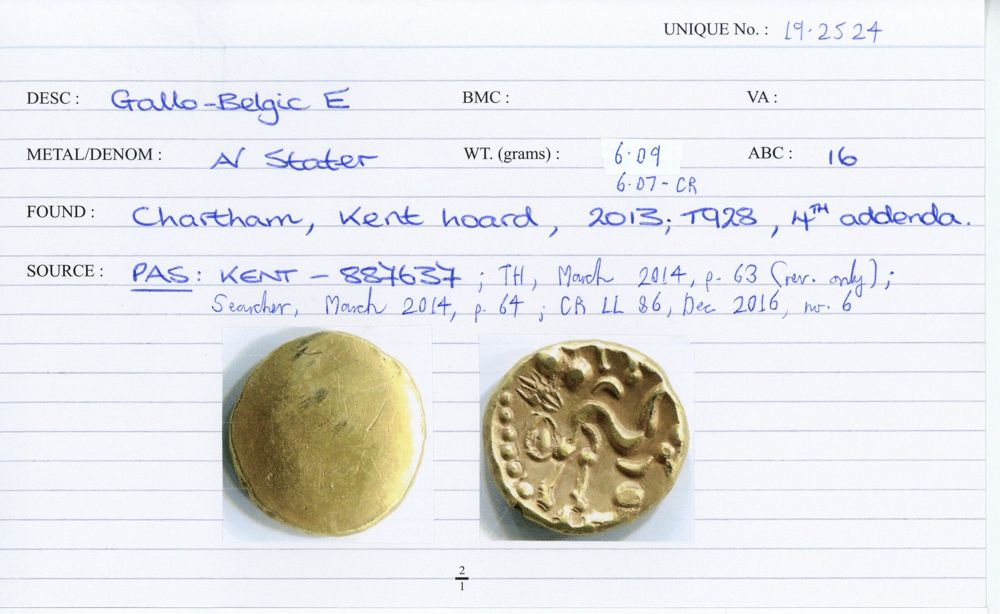 UNIQUE No. : 19.2524
DESC : Gallo-Belgic E BMC : VA :
METAL/DENOM : AV Stater WT. (grams) : 6.09 ABC : 16
6.07 - CR
FOUND : Chartham, Kent hoard, 2013; T928, 4TH addenda.
SOURCE : PAS: KENT - 887637 ; TH, March 2014, p. 63 (rev. only);
Searcher, March 2014, p. 64 ; CR LL 86, Dec 2016, no. 6
2
1